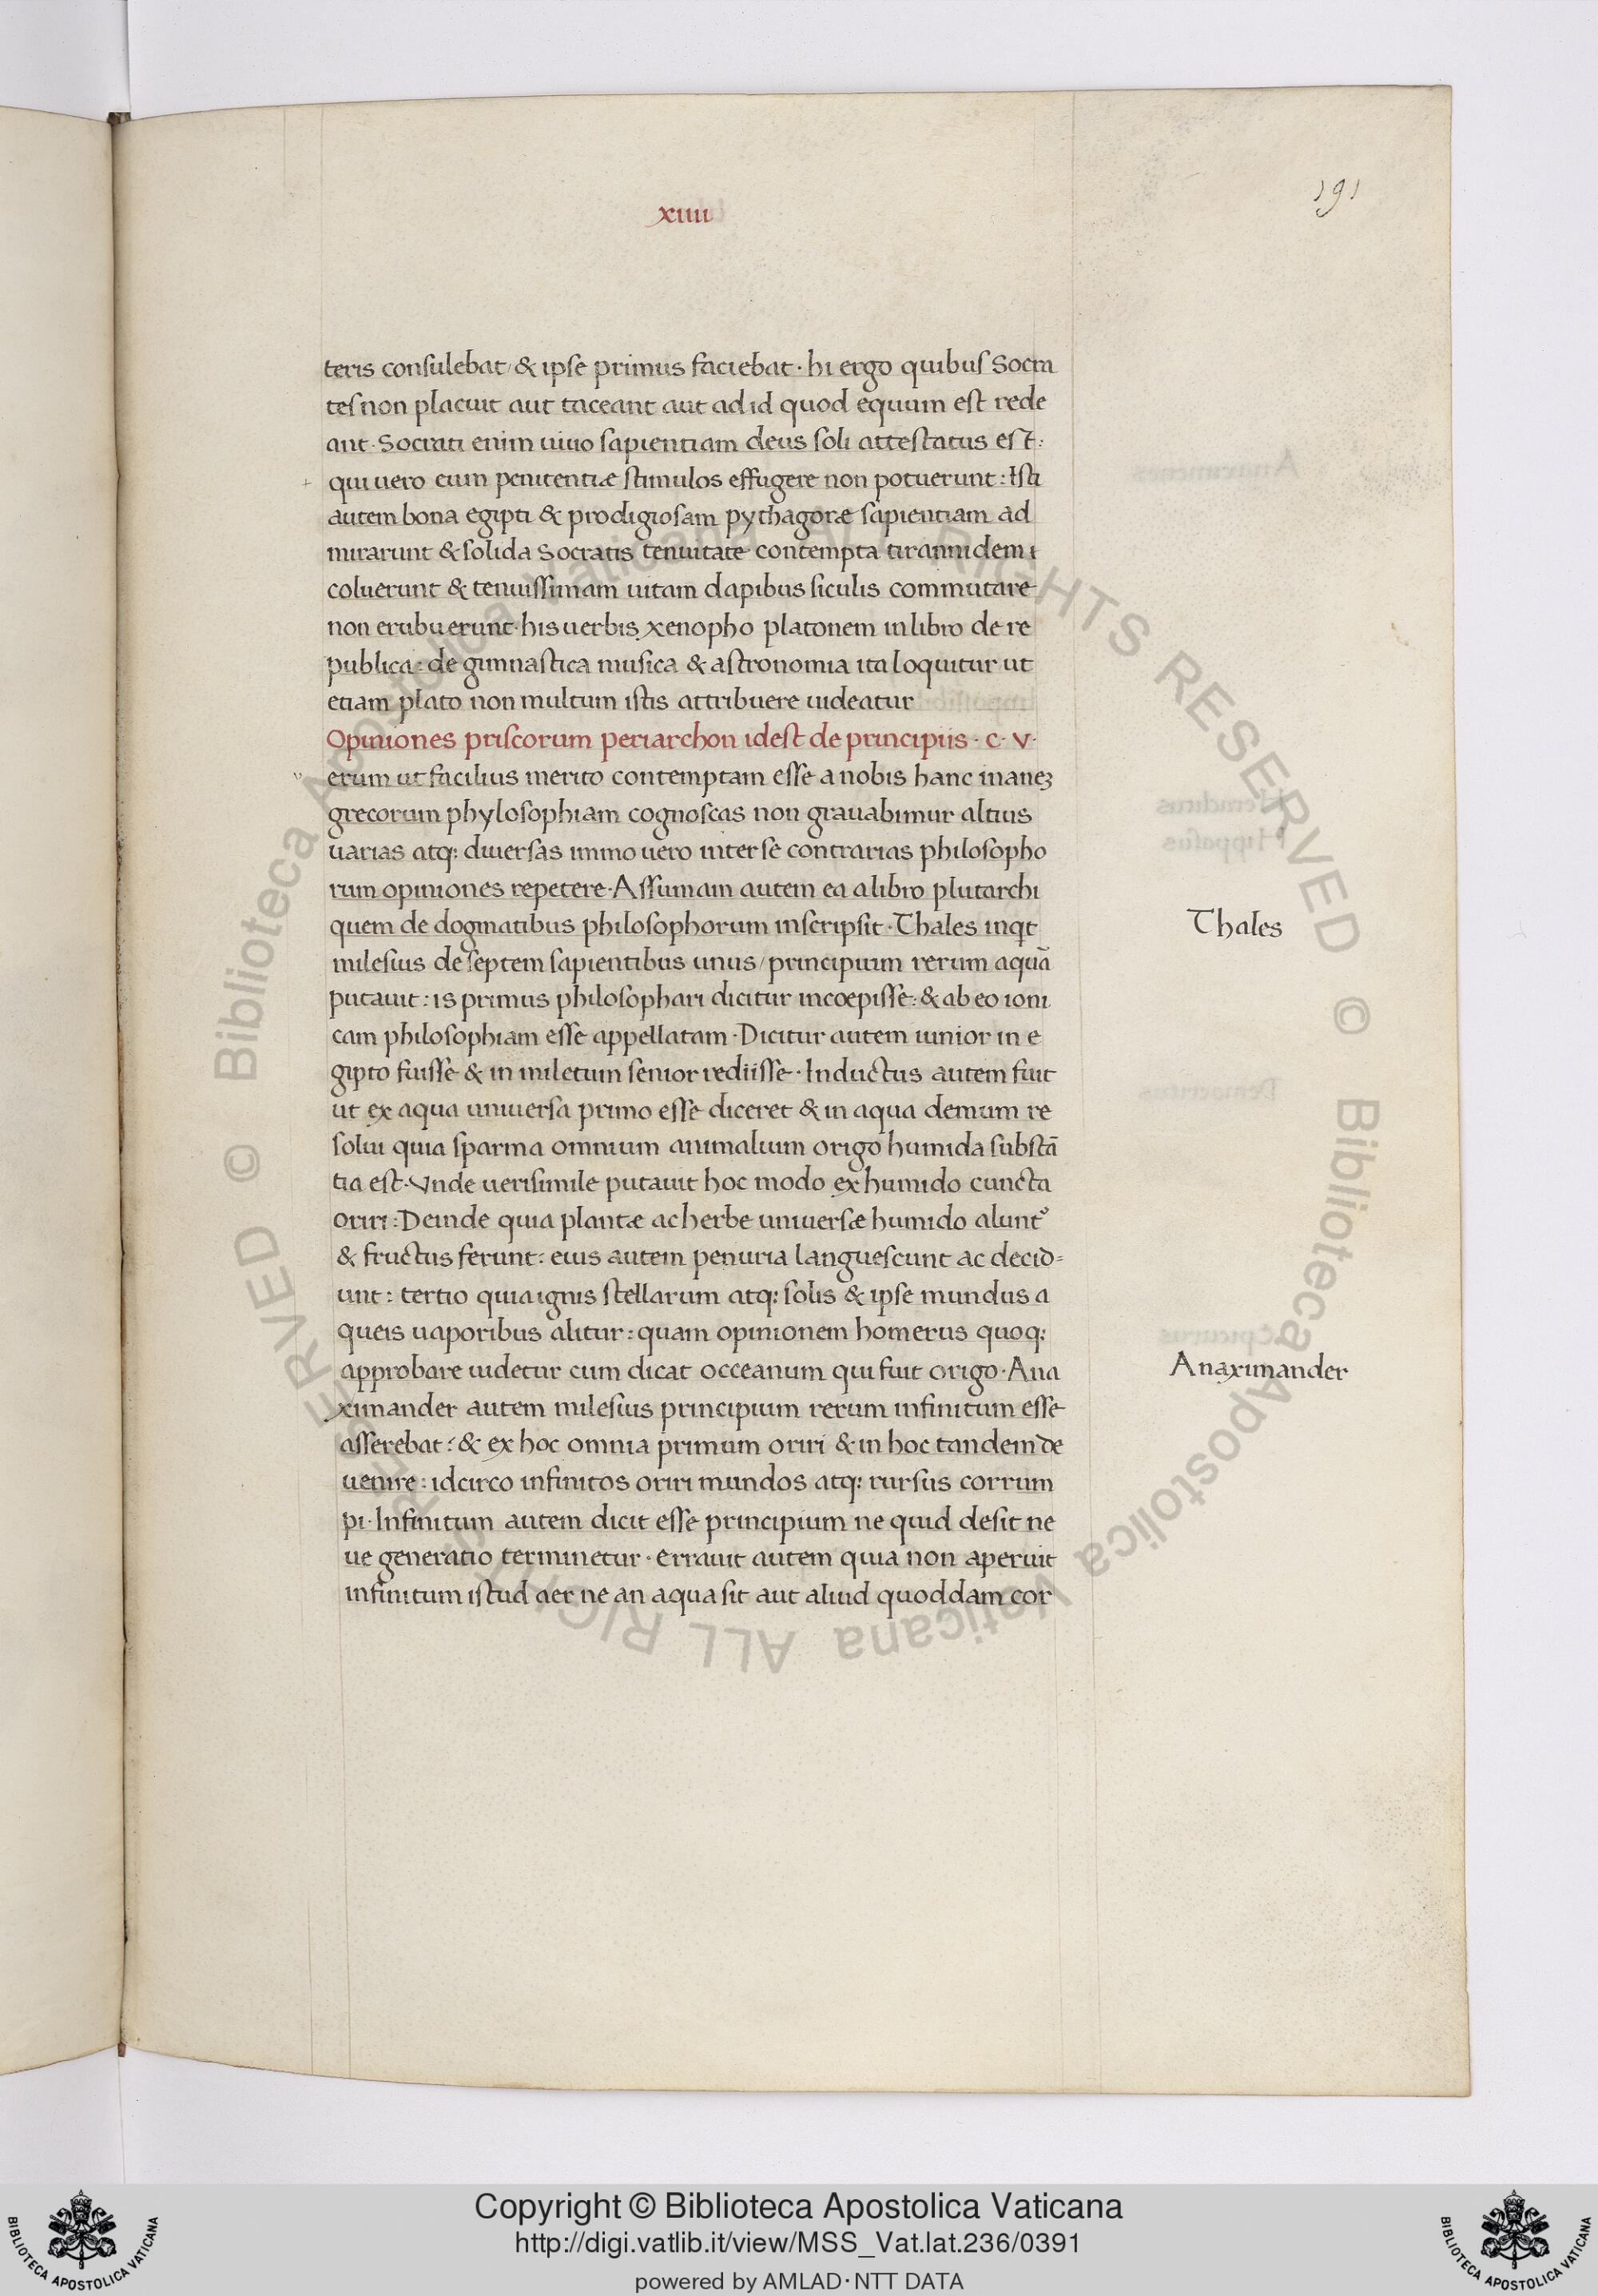 191
xiiii
teris consulebat / & ipse primus faciebat · hi ergo quibus Socra
tes non placuit aut taceant aut ad id quod equum est rede
ant · Socrati enim uiuo sapientiam deus soli attestatus est :
qui uero eum penitentiæ stimulos effugere non potuerunt : Isti
autem bona egipti & prodigiosam pythagoræ sapientiam ad
mirarunt & solida Socratis tenuitate contempta tirannidem i
coluerunt & tenuissimam uitam dapibus siculis commutare
non erubuerunt · his uerbis xenopho platonem in libro de re
publica : de gimnastica musica & astronomia ita loquitur ut
etiam plato non multum istis attribuere uideatur
Opiniones priscorum periarchon idest de principiis · c · v ·
erum ut facilius merito contemptam esse a nobis hanc inaneʒ
grecorum phylosophiam cognoscas non grauabimur altius
uarias atq: diuersas immo uero inter se contrarias philosopho
rum opiniones repetere · Assumam autem ea a libro plutarchi
quem de dogmatibus philosophorum inscripsit · Thales inqt
Thales
milesius de septem sapientibus unus / principium rerum aquā
putauit : is primus philosophari dicitur incoepisse : & ab eo ioni
cam philosophiam esse appellatam · Dicitur autem iunior in e
gipto fuisse & in miletum senior rediisse · Inductus autem fuit
ut ex aqua uniuersa primo esse diceret & in aqua demum re
solui quia sparma omnium animalium origo humida substā
tia est · Vnde uerisimile putauit hoc modo ex humido cuncta
oriri : Deinde quia plantæ ac herbe uniuersæ humido alunt᾽
& fructus ferunt : eius autem penuria languescunt ac decid=
unt : tertio quia ignis stellarum atq: solis & ipse mundus a
queis uaporibus alitur : quam opinionem homerus quoq:
approbare uidetur cum dicat occeanum qui fuit origo · Ana
Anaximander
ximander autem milesius principium rerum infinitum esse
asserebat : & ex hoc omnia primum oriri & in hoc tandem de
uenire : idcirco infinitos oriri mundos atq: rursus corrum
pi · Infinitum autem dicit esse principium ne quid desit ne
ue generatio terminetur · errauit autem quia non aperuit
infinitum istud aer ne an aqua sit aut aliud quoddam cor
© Biblioteca Apostolica Vaticana ALL RIGHTS RESERVED © Biblioteca Apostolica Vaticana ALL RIGHTS RESERVED
Copyright © Biblioteca Apostolica Vaticana
http://digi.vatlib.it/view/MSS_Vat.lat.236/0391
powered by AMLAD·NTT DATA
BIBLIOTECA APOSTOLICA VATICANA
BIBLIOTECA APOSTOLICA VATICANA